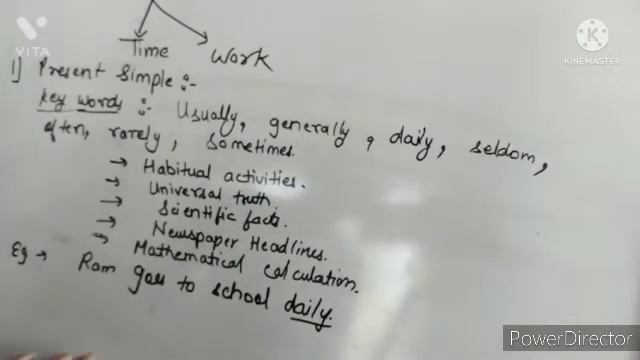 VITA
KINEMASTER
Time Work
1] Present Simple :-
Key words :- Usually, generally, daily, seldom,
often, rarely, sometimes.
→ Habitual activities.
→ Universal truth.
→ Scientific facts.
→ Newspaper Headlines.
→ Mathematical calculation.
Eg → Ram goes to school daily.
PowerDirector